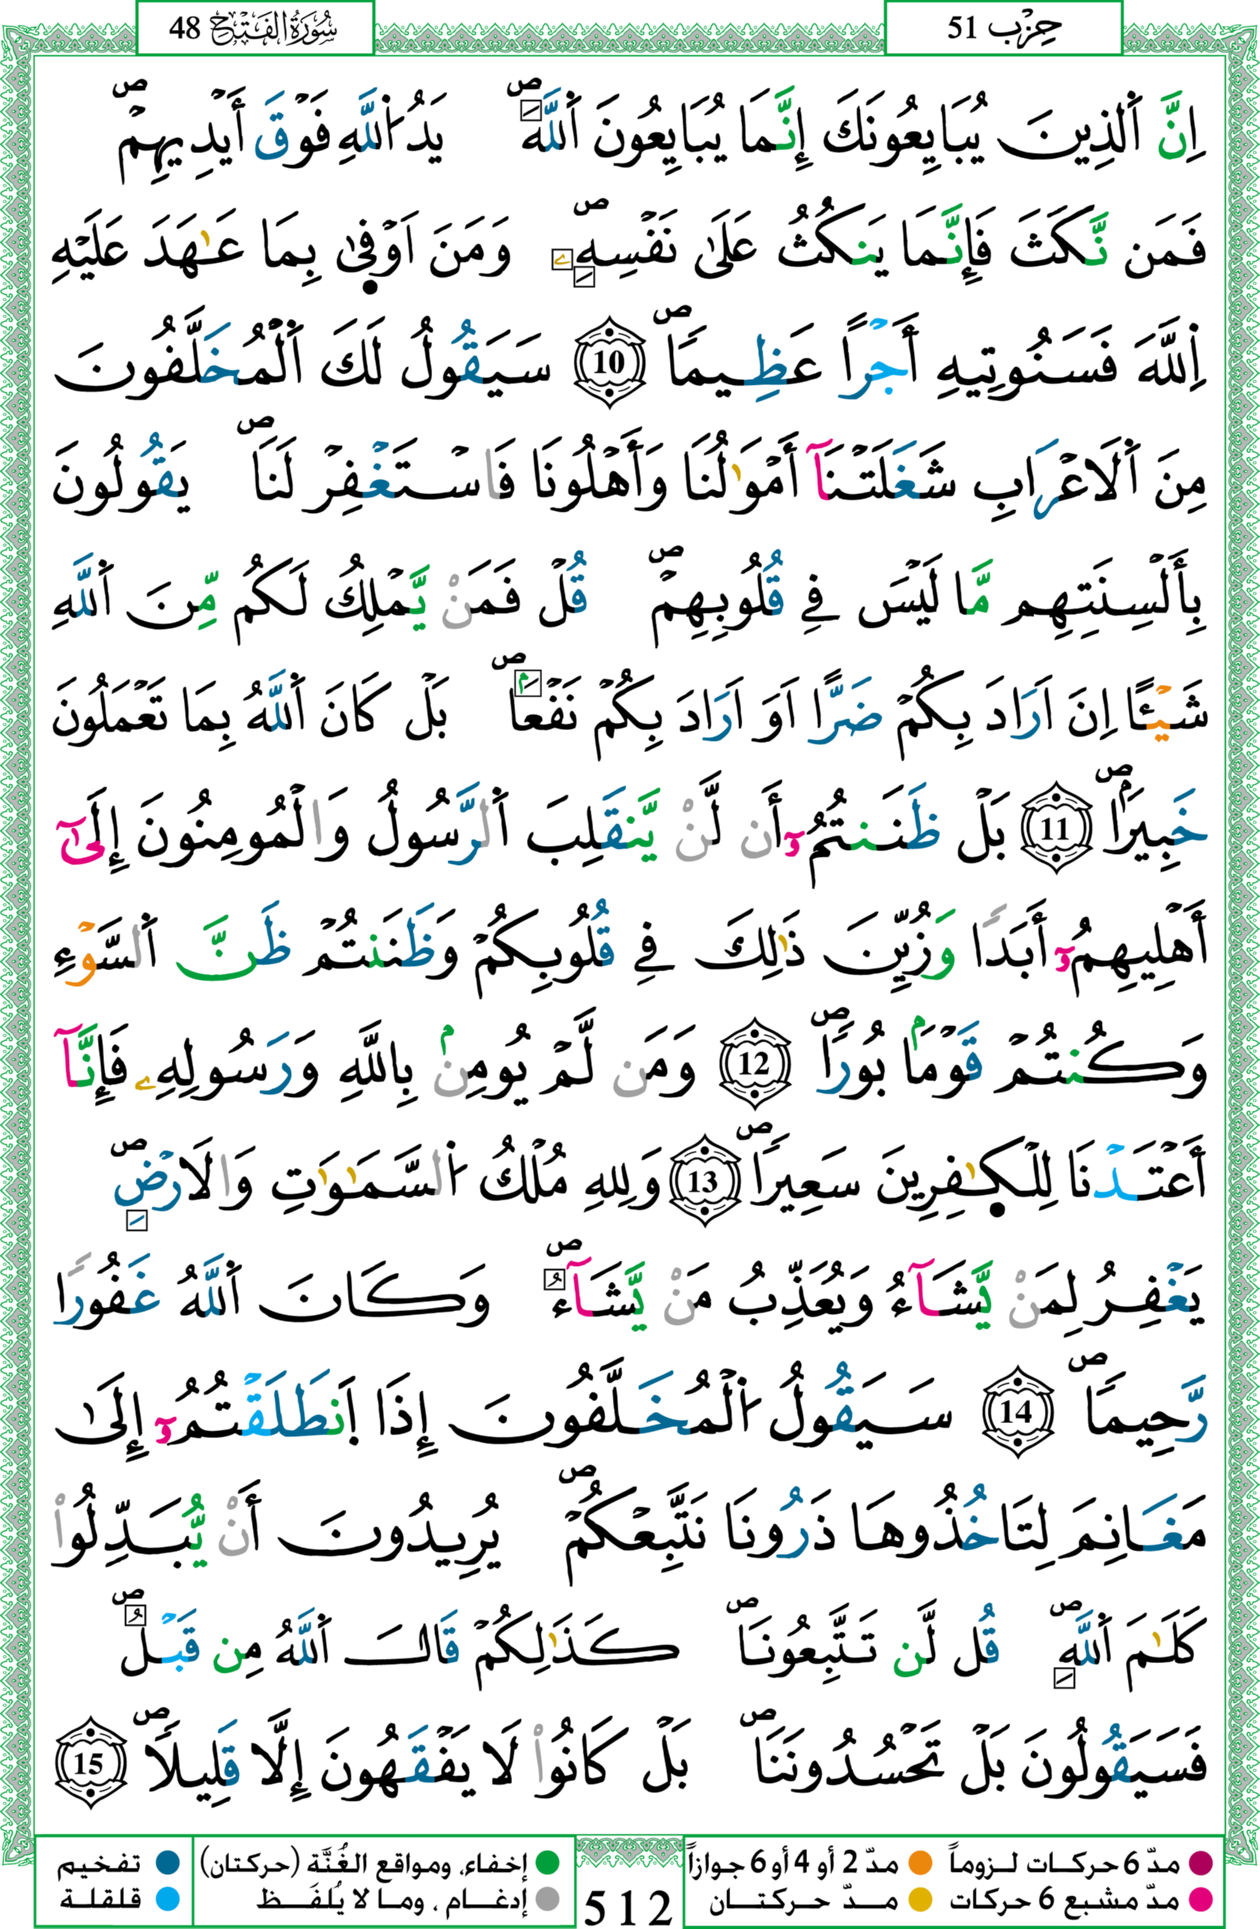 حِزْب 51
سُورَةُ الفَتْح 48
اِنَّ اَ۬لذِينَ يُبَايِعُونَكَ إِنَّمَا يُبَايِعُونَ اَ۬للَّهَ يَدُ اُ۬للَّهِ فَوْقَ أَيْدِيهِمْ
فَمَن نَّكَثَ فَإِنَّمَا يَنكُثُ عَلَىٰ نَفْسِهِۦ وَمَنَ اَوْفٜىٰ بِمَا عَٰهَدَ عَلَيْهِ
اِ۬للَّهَ فَسَنُوتِيهِ أَجْراً عَظِيماً 10 سَيَقُولُ لَكَ اَ۬لْمُخَلَّفُونَ
مِنَ اَ۬لَاعْرَابِ شَغَلَتْنَآ أَمْوَٰلُنَا وَأَهْلُونَا فَاسْتَغْفِرْ لَنَا يَقُولُونَ
بِأَلْسِنَتِهِم مَّا لَيْسَ فِے قُلُوبِهِمْ قُلْ فَمَنْ يَّمْلِكُ لَكُم مِّنَ اَ۬للَّهِ
شَيْـًٔا اِنَ اَرَادَ بِكُمْ ضَرًّا اَوَ اَرَادَ بِكُمْ نَفْعاً بَلْ كَانَ اَ۬للَّهُ بِمَا تَعْمَلُونَ
خَبِيراً 11 بَلْ ظَنَنتُمُۥٓ أَن لَّنْ يَّنقَلِبَ اَ۬لرَّسُولُ وَالْمُومِنُونَ إِلَىٰٓ
أَهْلِيهِمُۥٓ أَبَدًا وَزُيِّنَ ذَٰلِكَ فِے قُلُوبِكُمْ وَظَنَنتُمْ ظَنَّ اَ۬لسَّوْءِ
وَكُنتُمْ قَوْماَۢ بُوراً 12 وَمَن لَّمْ يُومِنۢ بِاللَّهِ وَرَسُولِهِۦ فَإِنَّآ
أَعْتَدْنَا لِلْكٰٜفِرِينَ سَعِيراً 13 وَلِلهِ مُلْكُ اُ۬لسَّمَٰوَٰتِ وَالَارْضِ
يَغْفِرُ لِمَنْ يَّشَآءُ وَيُعَذِّبُ مَنْ يَّشَآءُ وَكَانَ اَ۬للَّهُ غَفُورًا
رَّحِيماً 14 سَيَقُولُ اُ۬لْمُخَلَّفُونَ إِذَا اَ۪نطَلَقْتُمُۥٓ إِلَىٰ
مَغَانِمَ لِتَاخُذُوهَا ذَرُونَا نَتَّبِعْكُمْ يُرِيدُونَ أَنْ يُّبَدِّلُواْ
كَلَٰمَ اَ۬للَّهِ قُل لَّن تَتَّبِعُونَا كَذَٰلِكُمْ قَالَ اَ۬للَّهُ مِن قَبْلُ
فَسَيَقُولُونَ بَلْ تَحْسُدُونَنَا بَلْ كَانُواْ لَا يَفْقَهُونَ إِلَّا قَلِيلاً 15
مدّ 6 حركات لـزوماً مدّ 2 أو 4 أو 6 جوازاً
مدّ مشبع 6 حركات مـدّ حركتـان
512
إخفاء، ومواقع الغُنَّة (حركتان) تفخيم
إدغـام ، ومـا لا يُلفَـظ قلقلة